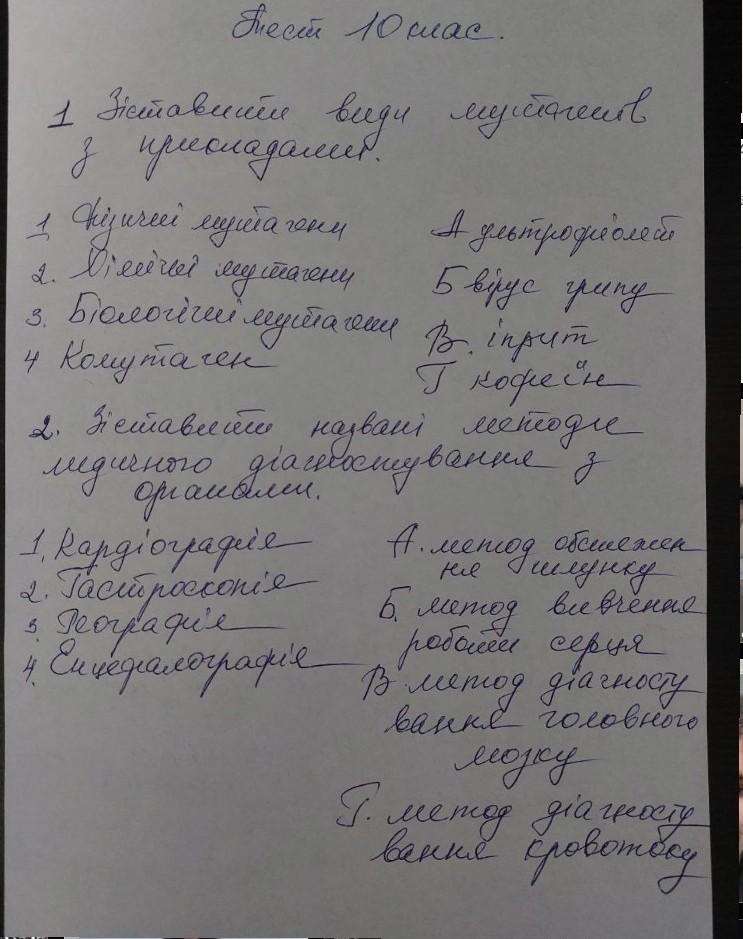 Тест 10 клас.
1 Зіставити види мутагенів
з прикладами.
1 Фізичні мутагени
2. Хімічні мутагени
3. Біологічні мутагени
4 Комутаген
А ультрофіолет
Б вірус грипу
В. іприт
Г кофеїн
2. Зіставити названі методи
медичного діагностування з
органами.
1. Кардіографія
2. Гастроскопія
3. Реографія
4. Енцефалографія
А. метод обстежен
ня шлунку
Б. метод вивчення
роботи серця
В. метод діагносту
вання головного
мозку
Г. метод діагносту
вання кровотоку